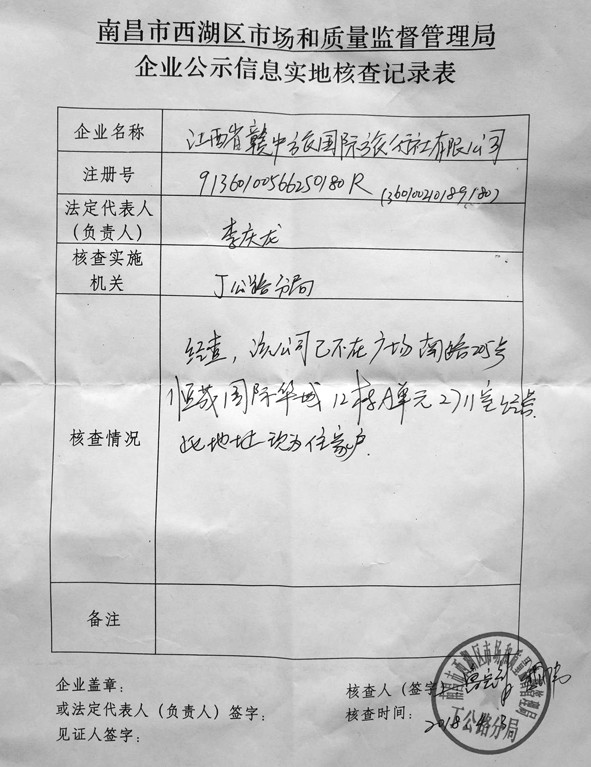 南昌市西湖区市场和质量监督管理局
企业公示信息实地核查记录表
企业名称
江西省赣中旅国际旅行社有限公司
注册号
91360100566250180R (360100210189180)
法定代表人
(负责人)
李庆龙
核查实施
机关
丁公路分局
核查情况
经查，该公司已不在广场南路205号
恒茂国际华城12栋A单元2711室经营.
此地址现为住家户.
备注
企业盖章：
或法定代表人（负责人）签字：
见证人签字：
核查人（签字）
核查时间：
2018
南昌市西湖区市场和质量监督管理局
丁公路分局